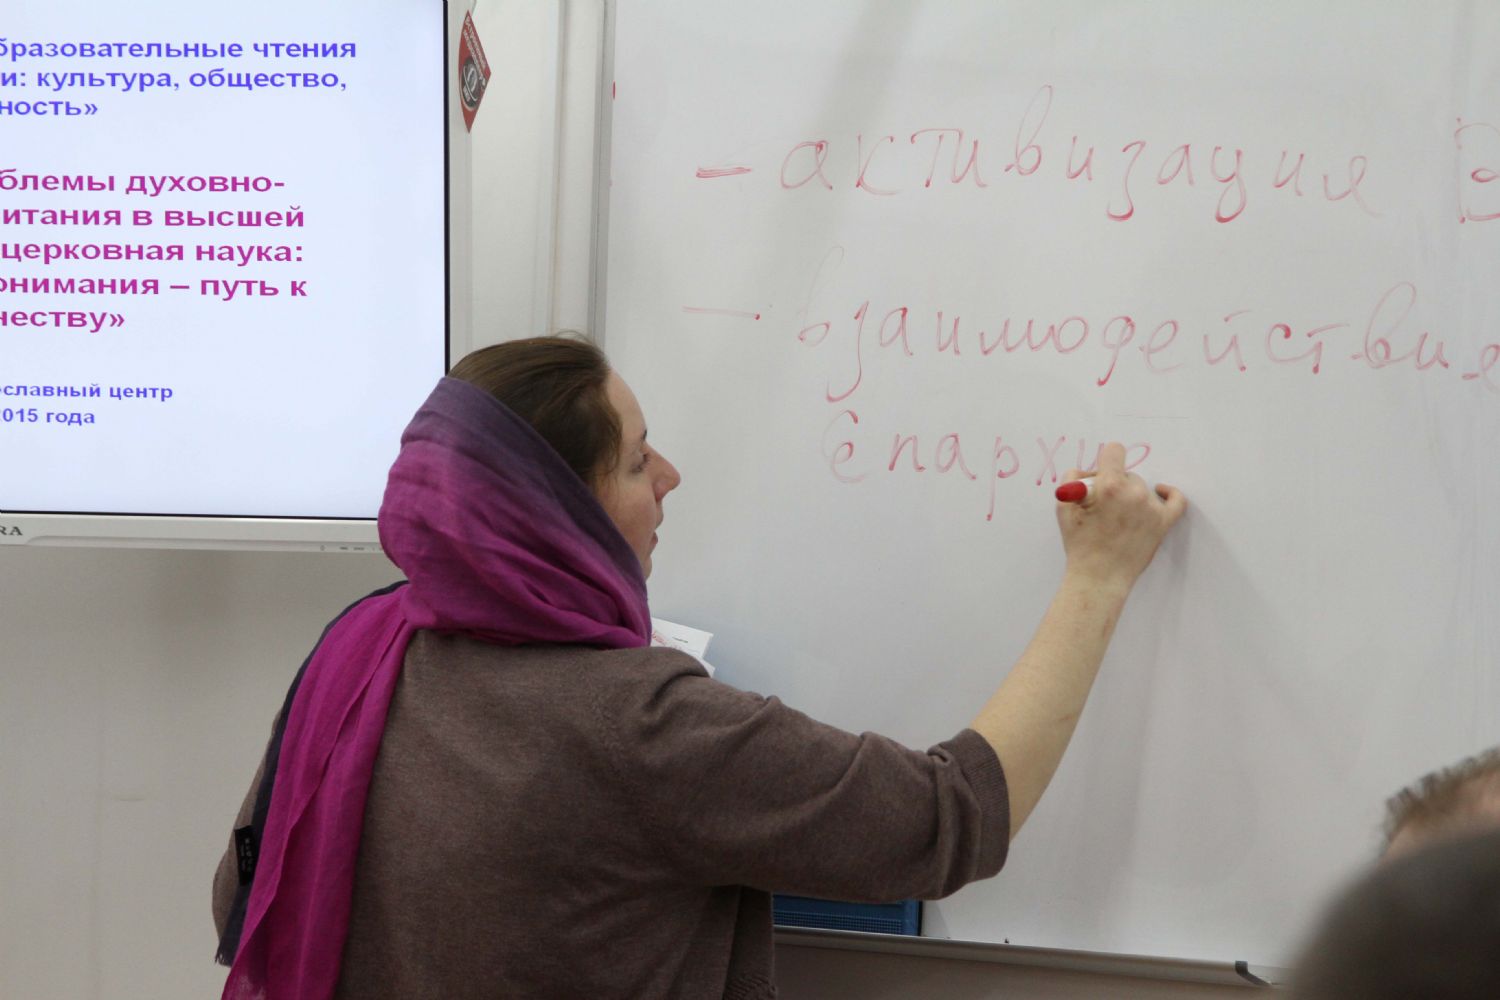 бразовательные чтения
и: культура, общество,
ность»
блемы духовно-
итания в высшей
церковная наука:
онимания – путь к
честву»
славный центр
2015 года
RA
- активизация
- взаимодействие
Епархий